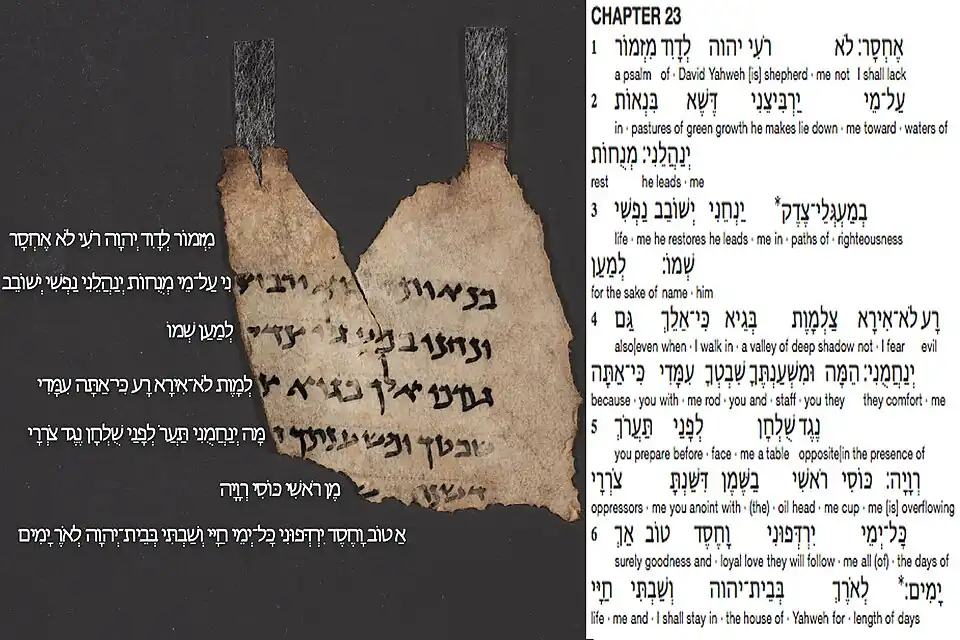 מִזְמוֹר לְדָוִד יְהוָה רֹעִי לֹא אֶחְסָר
נִי עַל־מֵי מְנֻחוֹת יְנַהֲלֵנִי נַפְשִׁי יְשׁוֹבֵב
לְמַעַן שְׁמוֹ
אלך בגיא צ לְמָוֶת לֹא־אִירָא רָע כִּי־אַתָּה עִמָּדִי
שבטך ומשענתך ה מָּה יְנַחֲמֻנִי תַּעֲר לְפָנַי שֻׁלְחָן נֶגֶד צֹרְרָי
מֶן רֹאשִׁי כּוֹסִי רְוָיָה
א טוֹב וָחֶסֶד יִרְדְּפוּנִי כָּל־יְמֵי חַיָּי וְשַׁבְתִּי בְּבֵית־יְהוָה לְאֹר יָמִים
CHAPTER 23
1 אֶחְסָר׃ לֹא רֹעִי יהוה לְדָוִד מִזְמוֹר
a psalm of · David Yahweh [is] shepherd · me not I shall lack
2 עַל־מֵי יַרְבִּיצֵנִי דֶּשֶׁא בִּנְאוֹת
in · pastures of green growth he makes lie down · me toward · waters of
יְנַהֲלֵנִי׃ מְנֻחוֹת
rest he leads · me
3 בְמַעְגְּלֵי־צֶדֶק* יַנְחֵנִי יְשׁוֹבֵב נַפְשִׁי
life · me he restores he leads · me in · paths of · righteousness
שְׁמוֹ׃ לְמַעַן
for the sake of name · him
4 רָע לֹא־אִירָא צַלְמָוֶת בְּגֵיא כִּי־אֵלֵךְ גַּם
also|even when · I walk in · a valley of deep shadow not · I fear evil
יְנַחֲמֻנִי׃ הֵמָּה וּמִשְׁעַנְתֶּךָ שִׁבְטְךָ עִמָּדִי כִּי־אַתָּה
because · you with · me rod · you and · staff · you they they comfort · me
5 נֶגֶד שֻׁלְחָן לְפָנַי תַּעֲרֹךְ
you prepare before · face · me a table opposite|in the presence of
רְוָיָה׃ כּוֹסִי רֹאשִׁי בַשֶּׁמֶן דִּשַּׁנְתָּ צֹרְרָי
oppressors · me you anoint with · (the) · oil head · me cup · me [is] overflowing
6 כָּל־יְמֵי יִרְדְּפוּנִי וָחֶסֶד טוֹב אַךְ
surely goodness and · loyal love they will follow · me all (of) · the days of
יָמִים׃* לְאֹרֶךְ בְּבֵית־יהוה וְשַׁבְתִּי חַיָּי
life · me and · I shall stay in · the house of · Yahweh for · length of days